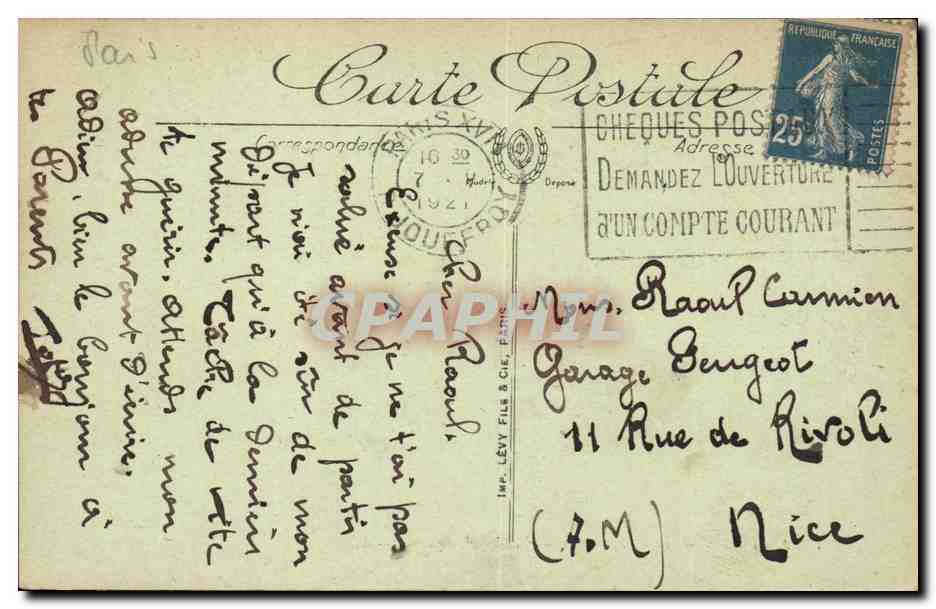 Paris
Carte Postale
REPUBLIQUE FRANÇAISE
25c
POSTES
Correspondance
Adresse
Modèle Déposé
PARIS XVI
16 30
7
1921
CHEQUES POS
DEMANDEZ L'OUVERTURE
d'UN COMPTE COURANT
Cher Raoul.
Excuse si je ne t'ai pas
salué avant de partir
Je n'ai été sûr de mon
départ qu'à la dernière
minute. Tâche de vite
te guérir. attends mon
adresse avant d'écrire.
adieu, bien le bonjour à
tes Parents
Mons. Raoul
Garage Peugeot
11 Rue de Rivoli
(A.M) Nice
IMP. LÉVY FILS & CIE, PARIS
CPAPHIL